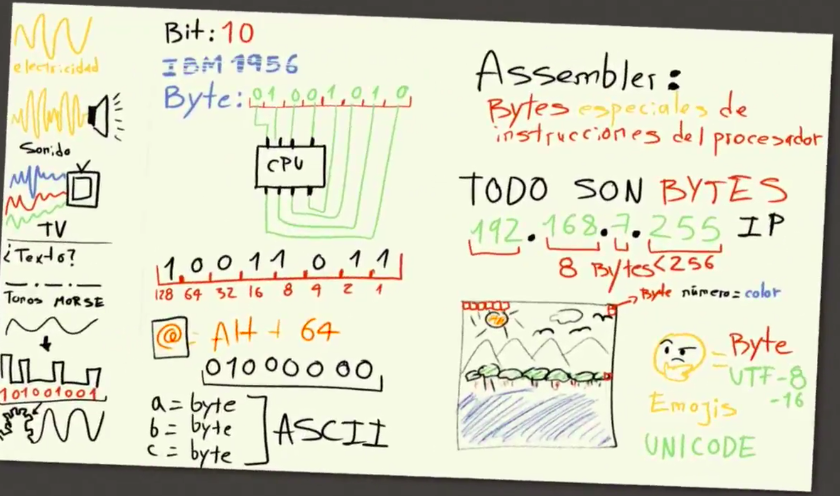 electricidad
Sonido
TV
¿Texto?
Tonos MORSE
101001001
Bit: 10
IBM 1956
Byte: 01001010
CPU
1 0 0 1 1 0 1 1
128 64 32 16 8 4 2 1
@ = Alt + 64
01000000
a = byte
b = byte
c = byte
ASCII
Assembler:
Bytes especiales de
instrucciones del procesador
TODO SON BYTES
192.168.7.255 IP
8 Bytes<256
Byte número = color
= Byte
UTF-8
-16
Emojis
UNICODE